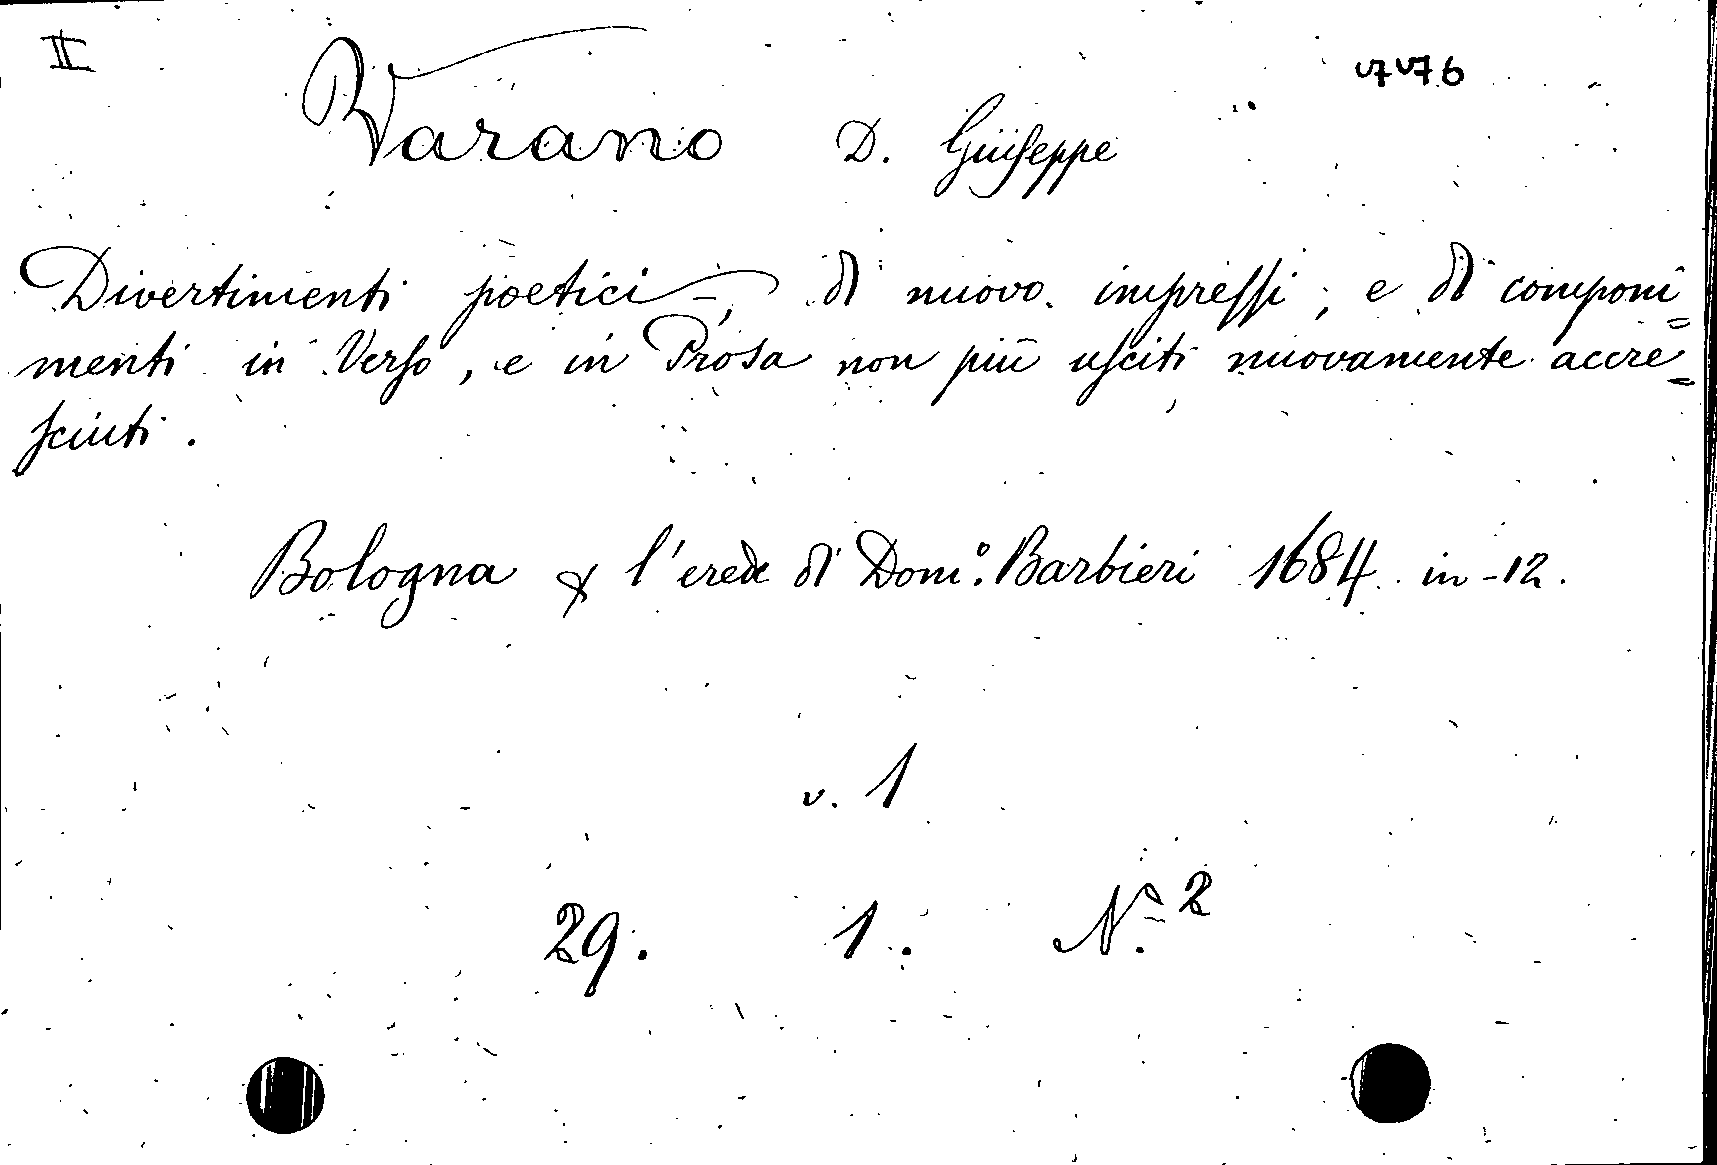 II
7776
Varano D. Giuseppe
Divertimenti poetici -, di nuovo impressi, e di componi=
menti in Verso, e in Prosa non più usciti nuovamente accre=
sciuti.
Bologna l'erede di Dom.º Barbieri 1684 in-12.
v. 1
29. 1. N.º 2